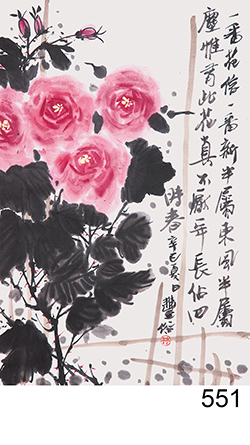 一番花信一番新半屬東風半屬
塵惟有此花真不厭一年長佔四
時春 辛巳夏日
551